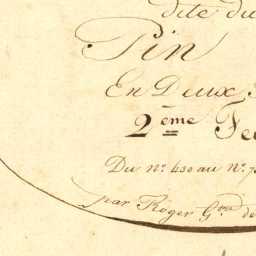 dite du
Pin
En Deux
2ème Fe
Du N° 430 au N° 7
par Roger Gom de